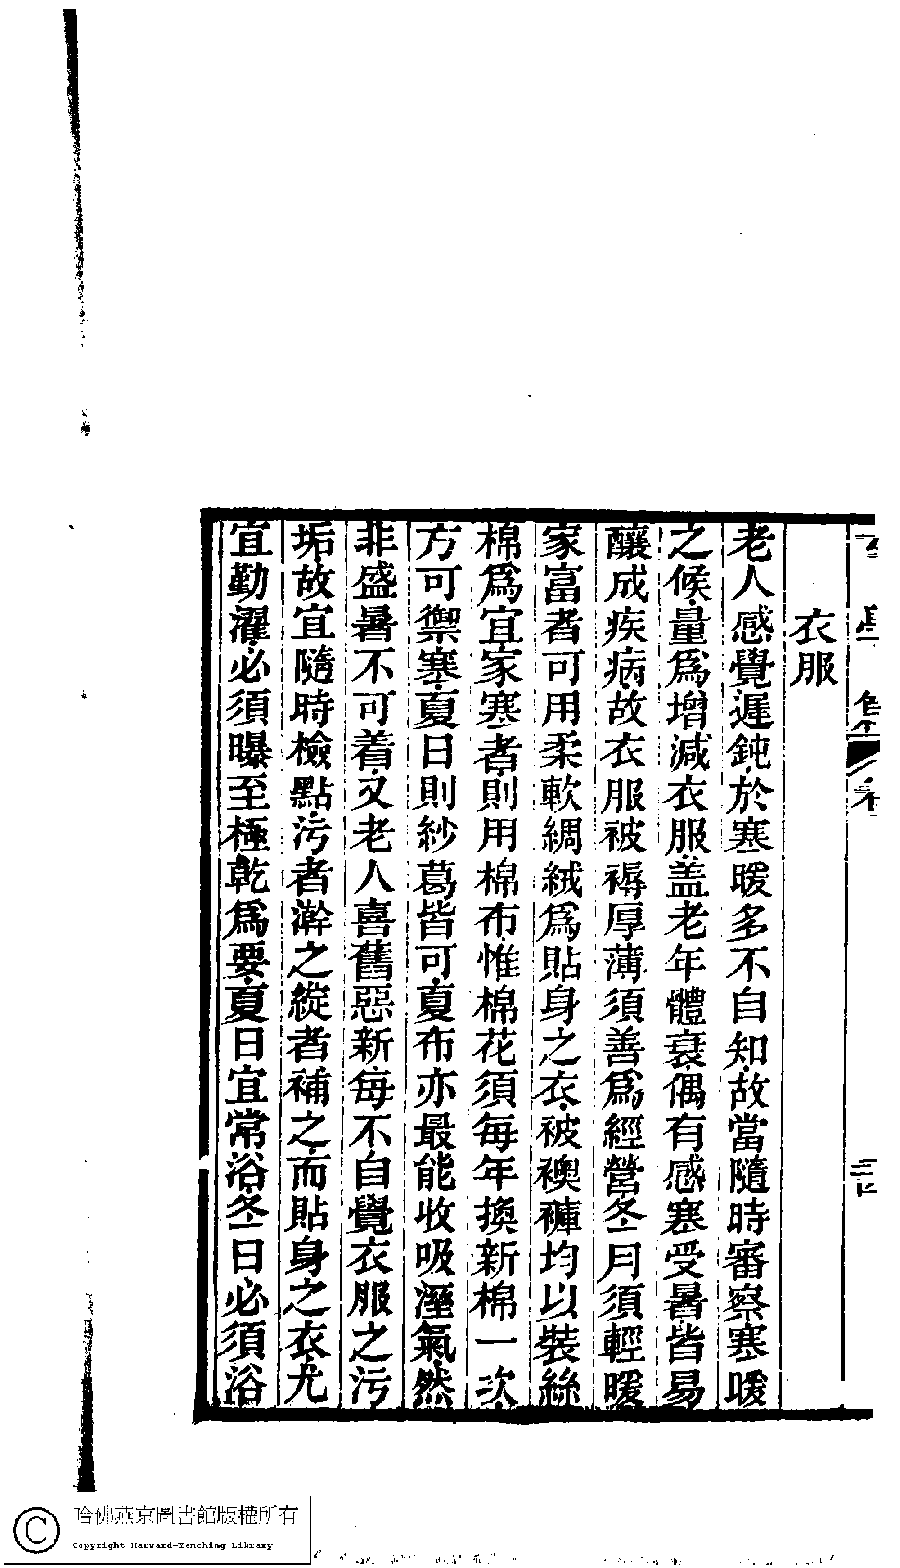 衣服
老人感覺遲鈍於寒暖多不自知故當隨時審察寒暖
之候量爲增減衣服盖老年體衰偶有感寒受暑皆易
釀成疾病故衣服被褥厚薄須善爲經營冬月須輕暖
家富者可用柔軟綢絨爲貼身之衣被襖褲均以裝絲
棉爲宜家寒者則用棉布惟棉花須每年換新棉一次
方可禦寒夏日則紗葛皆可夏布亦最能收吸溼氣然
非盛暑不可着又老人喜舊惡新每不自覺衣服之污
垢故宜隨時檢點污者澣之綻者補之而貼身之衣尤
宜勤濯必須曝至極乾爲要夏日宜常浴冬日必須浴
哈佛燕京圖書館版權所有
Copyright Harvard-Yenching Library